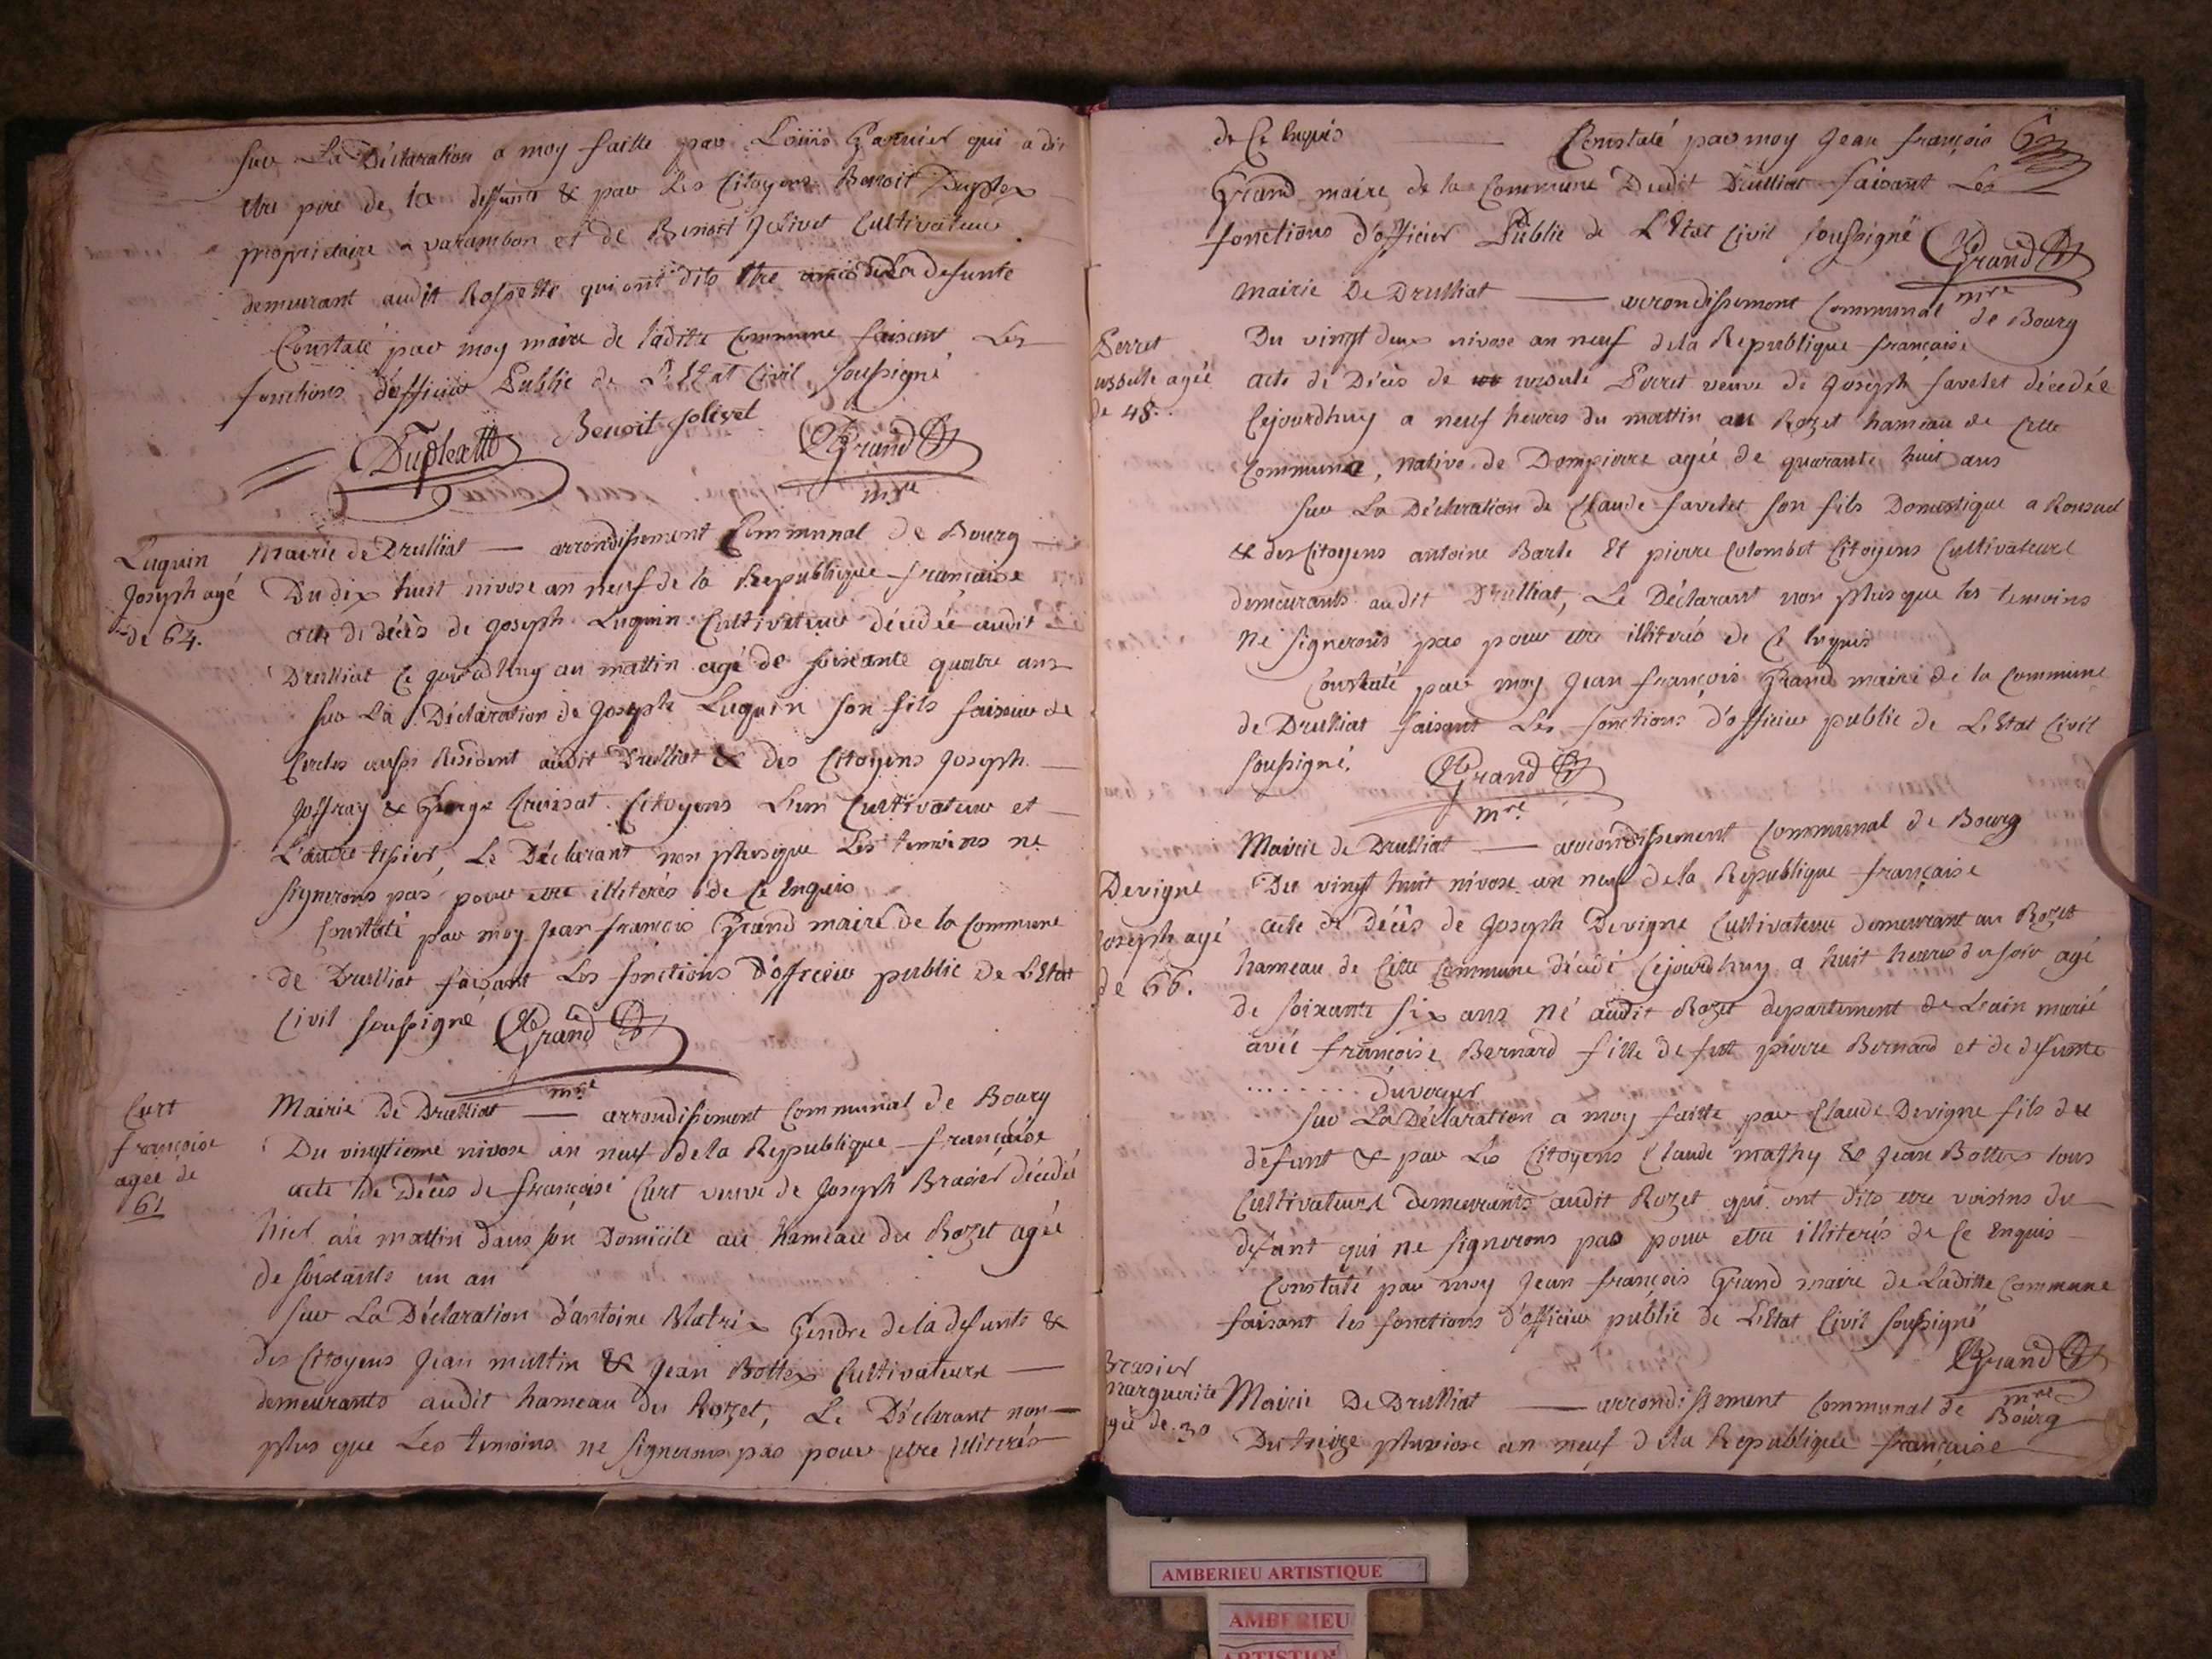 sur La Déclaration a moy faitte par Loüis Garnier qui a dit
etre pere de la deffunte & par Les Citoyens Benoit Duplex
proprietaire a varambon et de Benoit Jolivet Cultivateur
demeurant audit Rossette qui ont dits etre amis de La defunte
Constaté par moy maire de laditte Commune faisant Les
fonctions d'officier Public de L'Etat Civil, soussigné
Benoit Jolivet
Grand
mre
Luguin
Joseph agé
de 64.
Mairie de Drulliat — arrondissement Communal de Bourg
Du dix huit nivose an neuf de la Republique française
acte de décès de Joseph Luguin Cultivateur décédé audit
Drulliat Ce jourdhuy au mattin agé de soixante quatre ans
sur La Déclaration de Joseph Luguin son fils faiseur de
Cercles aussi Resident audit Drulliat & des Citoyens Joseph
Joffray & George Croissat Citoyens L'un Cultivateur et
L'autre tisier, Le Déclarant non plus que Les temoins ne
signerons pas pour etre illiterés de Ce Enquis
Constaté par moy Jean françois Grand maire de la Commune
de Drulliat faisant Les fonctions D'officier public de L'Etat
Civil soussigné Grand
mre
Curt
françoise
agée de
61
Mairie De Drulliat — arrondissement Communal de Bourg
Du vingtieme nivose an neuf de la Republique française
acte De Décès de françoise Curt veuve de Joseph Brasier décédée
hier au mattin dans son Domicile au hameau du Rozet agée
de soixante un an
sur La Déclaration d'antoine Gendre de la defunte &
des Citoyens Jean muttin & Jean Bottex Cultivateurs —
demeurants audit hameau du Rozet, Le Déclarant non —
plus que Les temoins ne signerons pas pour etre illiterés
de Ce Enquis — Constaté par moy Jean françois
Grand maire de la Commune Dudit Drulliat faisant Les
fonctions d'officier Public de L'Etat Civil soussigné Grand
mre
Mairie De Drulliat — arrondissement Communal de Bourg
Perret
ursule agée
de 48.
Du vingt deux nivose an neuf de la Republique française
acte de Décès de ursule Perret veuve de Joseph favelet décedée
Cejourdhuy a neuf heures du mattin au Rozet hameau de Cette
Commune, native de Dompierre agée de quarante huit ans
sur La Déclaration de Claude favelet son fils Domestique a
& des Citoyens antoine Barle Et pierre Colombet Citoyens Cultivateurs
demeurants audit Drulliat, Le Déclarant non plus que les temoins
ne signerons pas pour etre illiterés de Ce Enquis
Constaté par moy Jean françois Grand maire de la Commune
de Drulliat faisant Les fonctions d'officier public de L'Etat Civil
soussigné. Grand
mre.
Mairie de Drulliat — arrondissement Communal de Bourg
Devigne
Joseph agé
de 66.
Du vingt huit nivose an neuf de la Republique française
acte de Décès de Joseph Devigne Cultivateur demeurant au Rozet
hameau de Cette Commune décédé Cejourdhuy a huit heures du soir agé
de soixante six ans né audit Rozet departement de Leain marié
avec françoise Bernard fille de fut pierre Bernard et de defunte
........ duvoyer
sur La Déclaration a moy faitte par Claude Devigne fils du
defunt & par Les Citoyens Claude mathy & Jean Bottex tous
Cultivateurs demeurants audit Rozet qui ont dits etre voisins du
defunt qui ne signerons pas pour etre illiterés de Ce Enquis —
Constaté par moy Jean françois Grand maire de Laditte Commune
faisant les fonctions d'officier public de L'Etat Civil soussigné
Grand
mre
Brasier
marguerite
agée de 30
Mairie De Drulliat — arrondissement Communal de Bourg
Du treize pluviose an neuf de la Republique française
AMBERIEU ARTISTIQUE
AMBERIEU
ARTISTIQUE